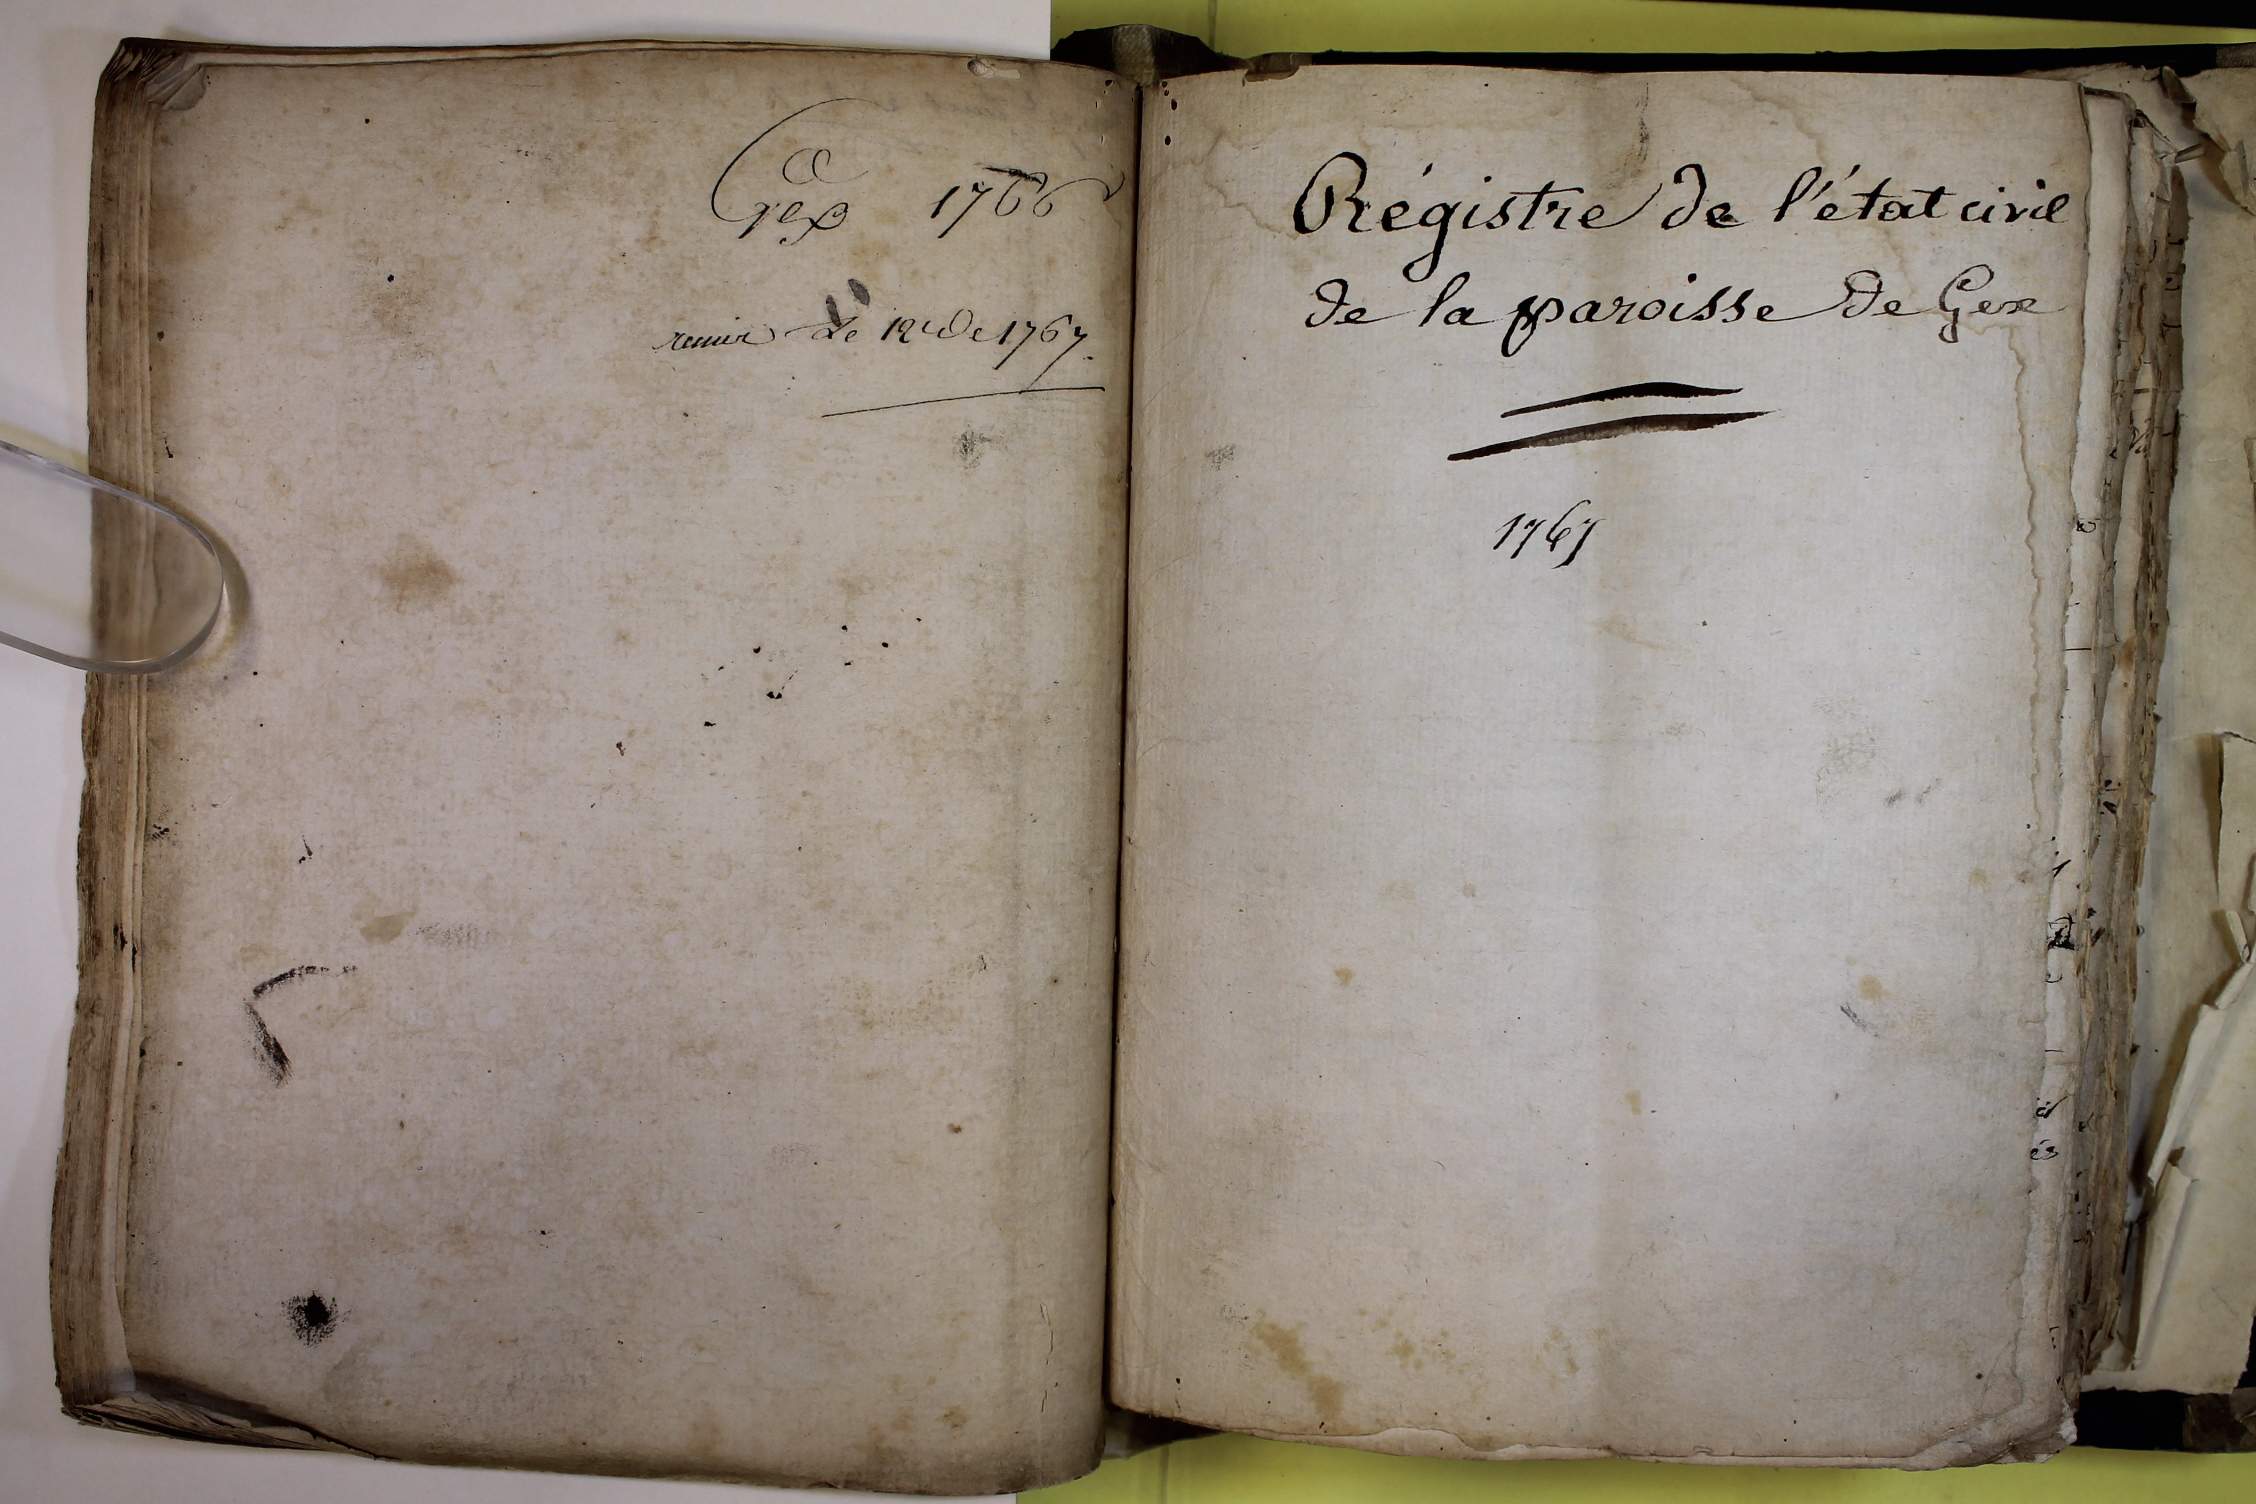 Gex 1766
remis le 12 de 1767.
Régistre de l'état civil
de la paroisse de Gex
1767